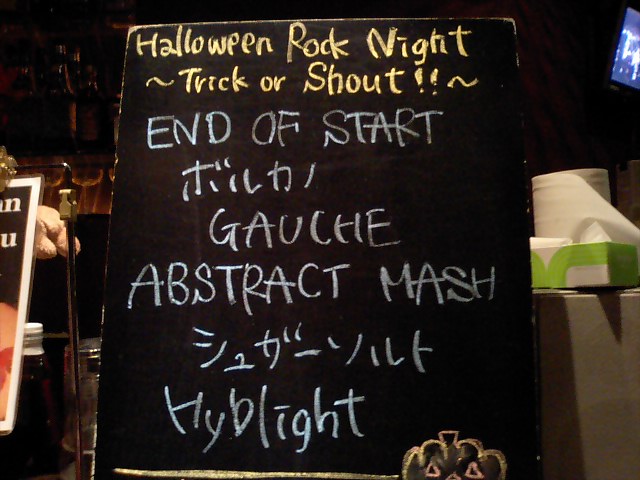 Halloween Rock Night
~Trick or Shout!!~
END OF START
ボルカノ
GAUCHE
ABSTRACT MASH
シュガーソルト
Hyblight
an
u